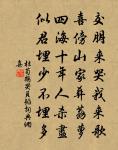 交朋来哭我来歌
喜傍山家葬荔萝
四海十年人杀尽
似君埋少不埋多
杜荀鹤哭贝韬